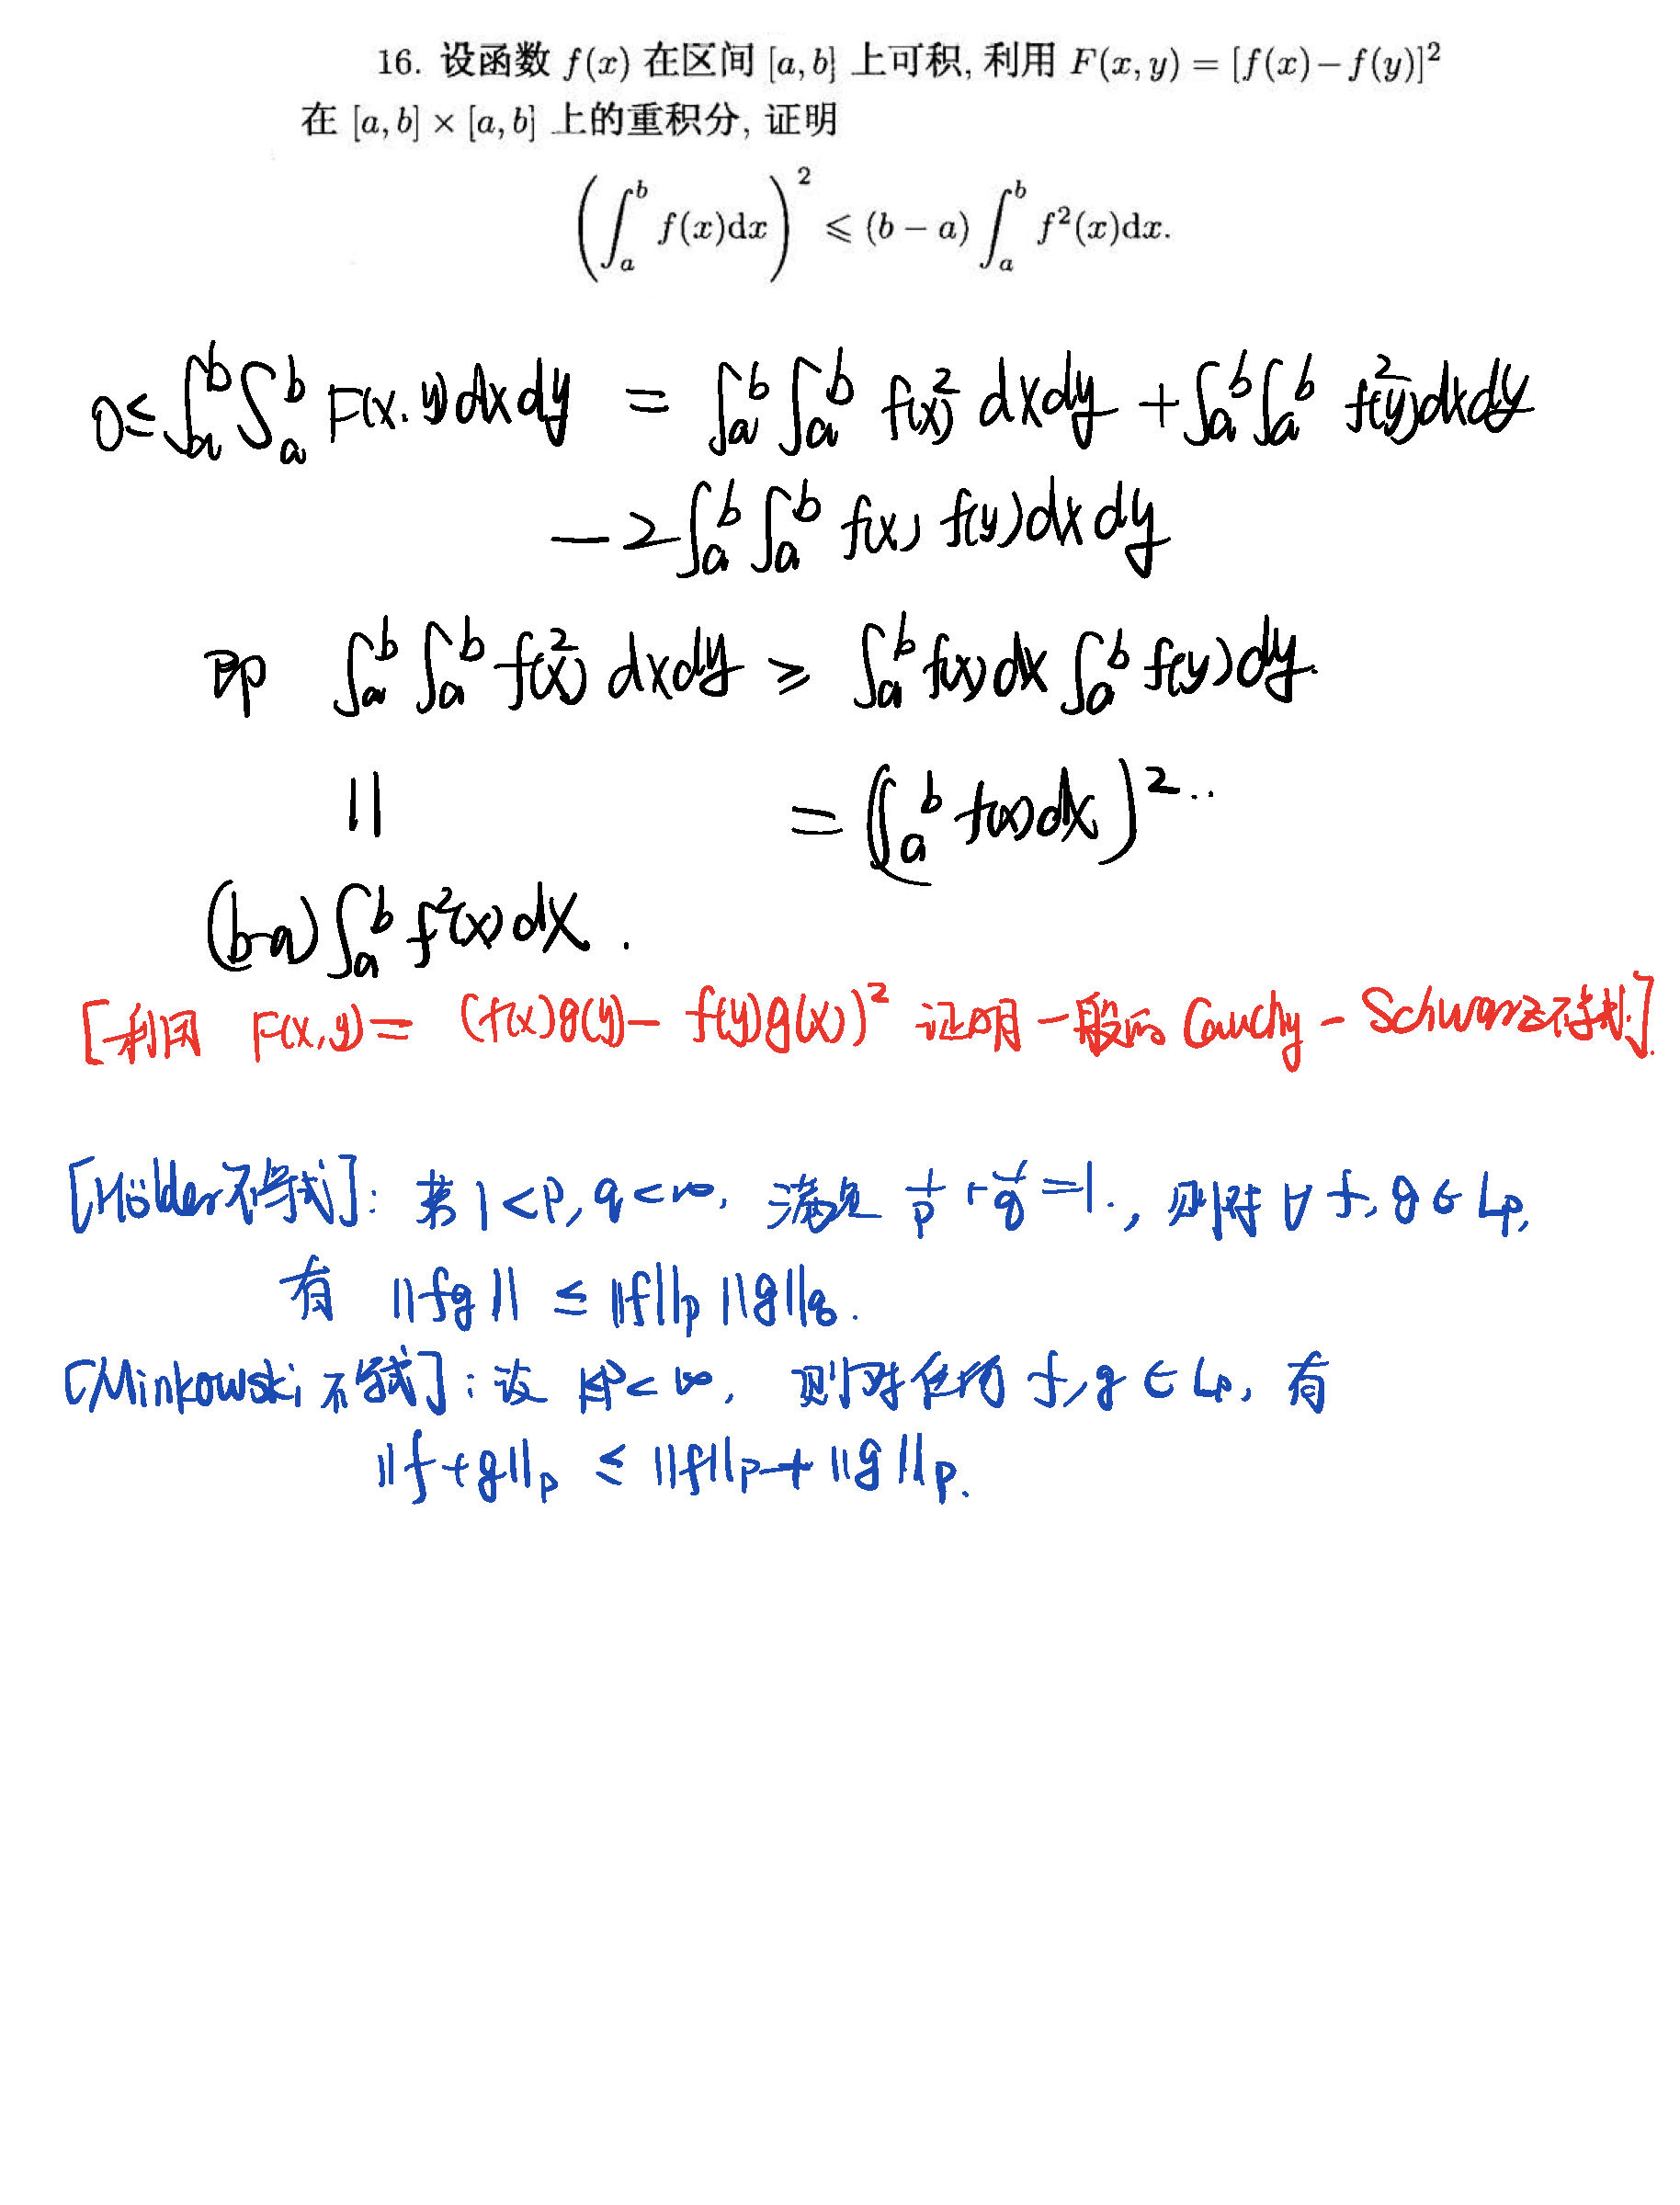 16. 设函数 f(x) 在区间 [a,b] 上可积, 利用 F(x,y) = [f(x)−f(y)]²
在 [a,b] × [a,b] 上的重积分, 证明
(∫_a^b f(x)dx)² ⩽ (b − a) ∫_a^b f²(x)dx.
0≤ ∫_a^b ∫_a^b F(x,y)dxdy = ∫_a^b ∫_a^b f(x)² dxdy + ∫_a^b ∫_a^b f(y)² dxdy
−2 ∫_a^b ∫_a^b f(x) f(y) dxdy
即 ∫_a^b ∫_a^b f(x)² dxdy ≥ ∫_a^b f(x)dx ∫_a^b f(y)dy.
|| = (∫_a^b f(x)dx)²..
(b-a) ∫_a^b f²(x)dx.
[利用 F(x,y) = (f(x)g(y) − f(y)g(x))² 证明一般的 Cauchy - Schwarz不等式].
[Hölder不等式]: 若 1<p,q<∞, 满足 1/p + 1/q = 1., 则对 ∀ f, g ∈ Lp,
有 ||fg|| ≤ ||f||p ||g||q.
[Minkowski 不等式]: 设 1≤p<∞, 则对任何 f, g ∈ Lp, 有
||f+g||p ≤ ||f||p + ||g||p.